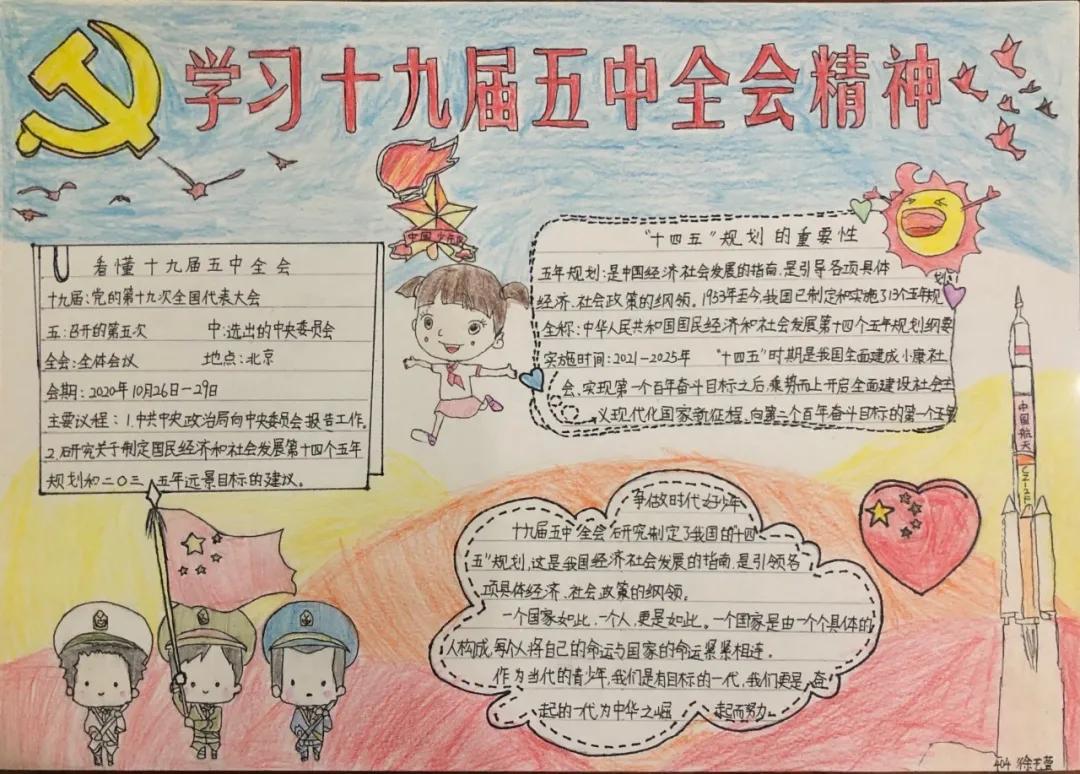 学习十九届五中全会精神
中国少先队
看懂十九届五中全会
十九届:党的第十九次全国代表大会
五:召开的第五次 中:选出的中央委员会
全会:全体会议 地点:北京
会期:2020年10月26日—29日
主要议程:1.中共中央政治局向中央委员会报告工作。
2.研究关于制定国民经济和社会发展第十四个五年
规划和二〇三五年远景目标的建议。
"十四五"规划的重要性
五年规划:是中国经济社会发展的指南,是引导各项具体
经济、社会政策的纲领。1953年至今,我国已制定和实施了13个五年规
划。
全称:中华人民共和国国民经济和社会发展第十四个五年规划纲要
实施时间:2021—2025年 "十四五"时期是我国全面建成小康社
会、实现第一个百年奋斗目标之后,乘势而上开启全面建设社会主
义现代化国家新征程,向第二个百年奋斗目标的第一个五年
中国航天
CZ-2F
争做时代好少年
十九届五中全会研究制定了我国的"十四
五"规划,这是我国经济社会发展的指南,是引领各
项具体经济、社会政策的纲领。
一个国家如此,一个人,更是如此。一个国家是由一个个具体的
人构成,每个人将自己的命运与国家的命运紧紧相连。
作为当代的青少年,我们是有目标的一代,我们更是奋
起的一代为中华之崛起而努力。
404 徐玉萱